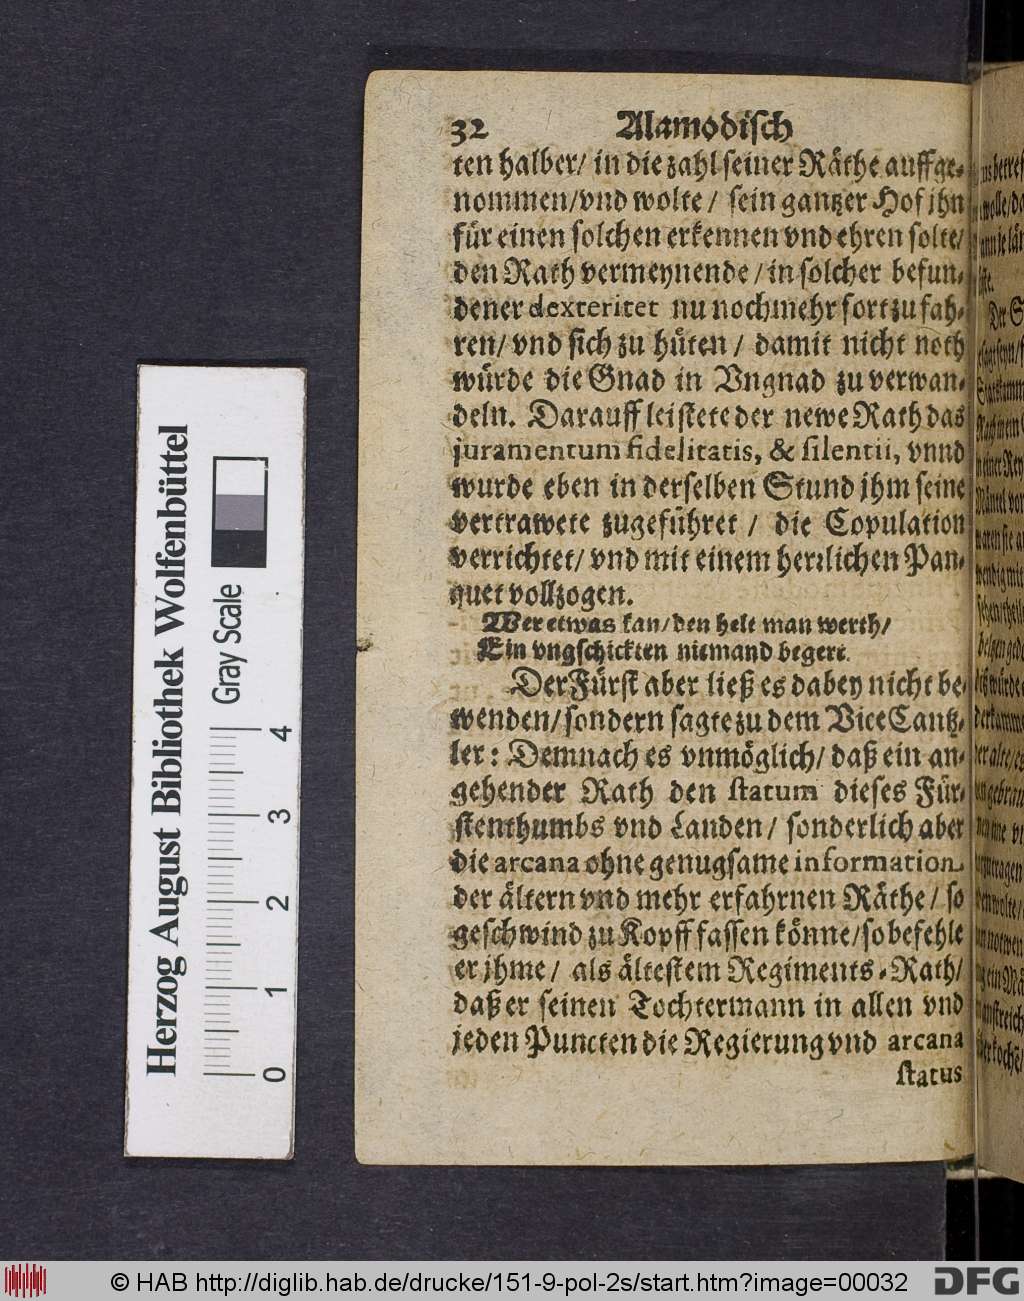 32 Alamodisch
ten halber/ in die zahl seiner Räthe auffge-
nommen/vnd wolte/ sein gantzer Hof jhn
für einen solchen erkennen vnd ehren solte/
den Rath vermeynende/in solcher befun-
dener dexteritet nu nochmehr fortzufah-
ren/ vnd sich zu hüten/ damit nicht noth
würde die Gnad in Vngnad zu verwan-
deln. Darauff leistete der newe Rath das
juramentum fidelitatis, & silentii, vnnd
wurde eben in derselben Stund jhm seine
vertrawete zugeführet/ die Copulation
verrichtet/ vnd mit einem herrlichen Pan-
quet vollzogen.
Wer etwas kan/den helt man werth/
Ein vngschickten niemand begert.
Der Fürst aber ließ es dabey nicht be-
wenden/sondern sagte zu dem ViceCantz-
ler: Demnach es vnmöglich/ daß ein an-
gehender Rath den statum dieses Für-
stenthumbs vnd Landen/ sonderlich aber
die arcana ohne genugsame information
der ältern vnd mehr erfahrnen Räthe/ so
geschwind zu Kopff fassen könne/so befehle
er jhme/ als ältestem Regiments-Rath/
daß er seinen Tochtermann in allen vnd
jeden Puncten die Regierung vnd arcana
status
Herzog August Bibliothek Wolfenbüttel
Gray Scale
0 1 2 3 4
© HAB http://diglib.hab.de/drucke/151-9-pol-2s/start.htm?image=00032
DFG